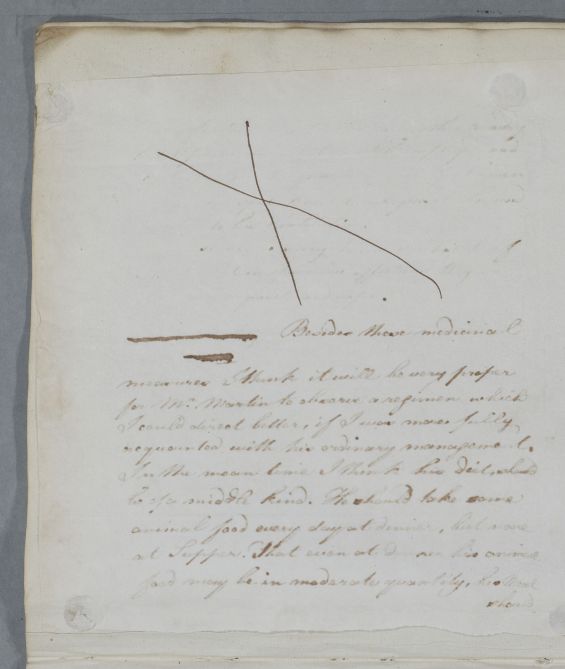 Besides these medicinal
measures I think it will be very proper
for Mr. Martin to observe a regimen which
I could direct better, if I was more fully
acquainted with his ordinary management.
In the mean time I think his diet should
be of a middle kind. He should take some
animal food every day at dinner, but none
at Supper. That even at dinner his animal
food may be in moderate quantity,
should